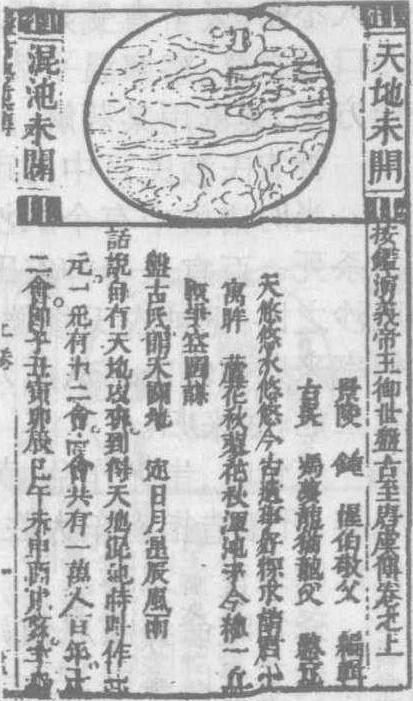 天地未開
混沌未開
按鑑演義帝王御世盤古至唐虞傳卷之上
景陵 鍾 惺伯敬父 編輯
古吳 馮夢龍猶龍父 鑒定
天悠悠水悠悠今古遺事好探求請君小
寓眸 蘆花秋蓼花秋渾沌乎今穗一丘
盤古氏開天闢地 定日月星辰風雨
話說自有天地以來到得天地混沌時叫作一
元一元有十二會一會共有一萬八百年十
二會即子丑寅卯辰巳午未申酉戌亥
上卷